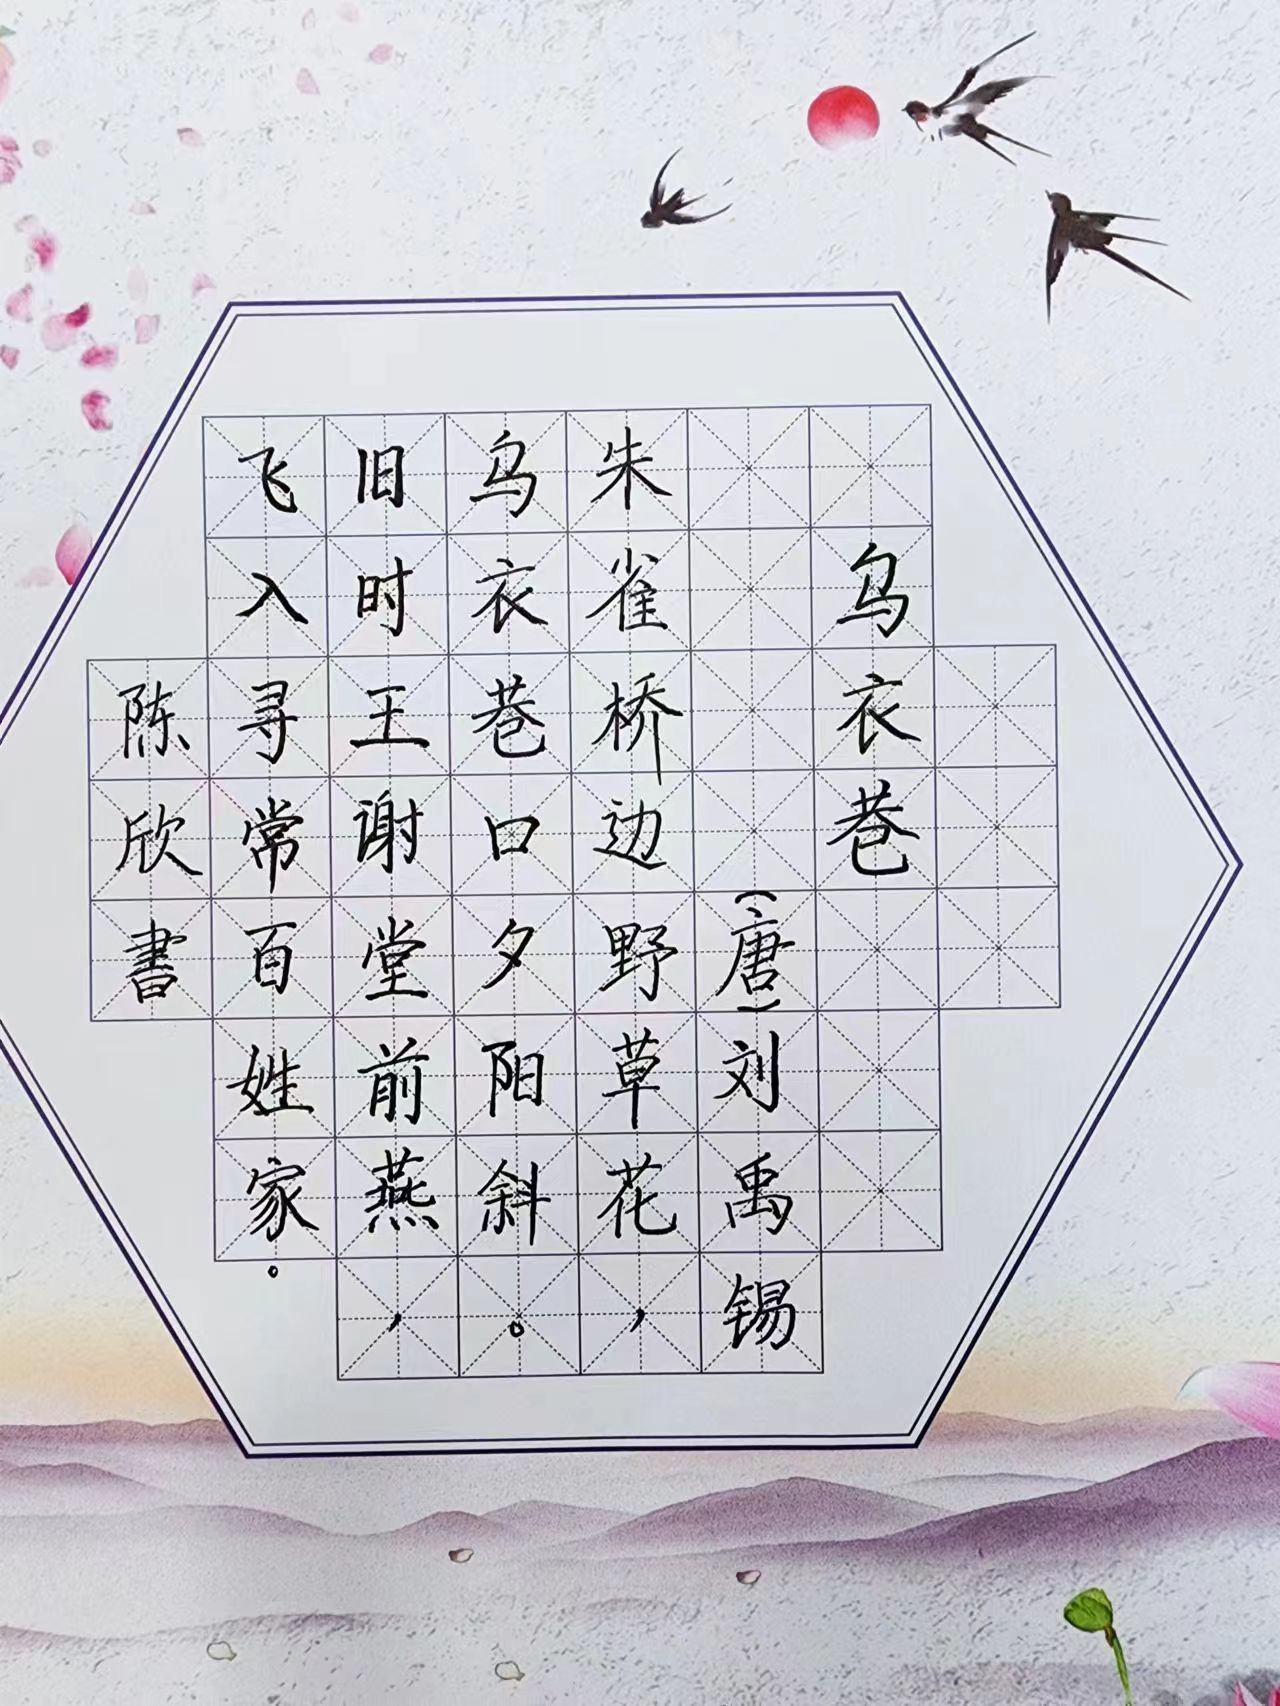 乌衣巷
(唐)刘禹锡
朱雀桥边野草花，
乌衣巷口夕阳斜。
旧时王谢堂前燕，
飞入寻常百姓家。
陈欣書